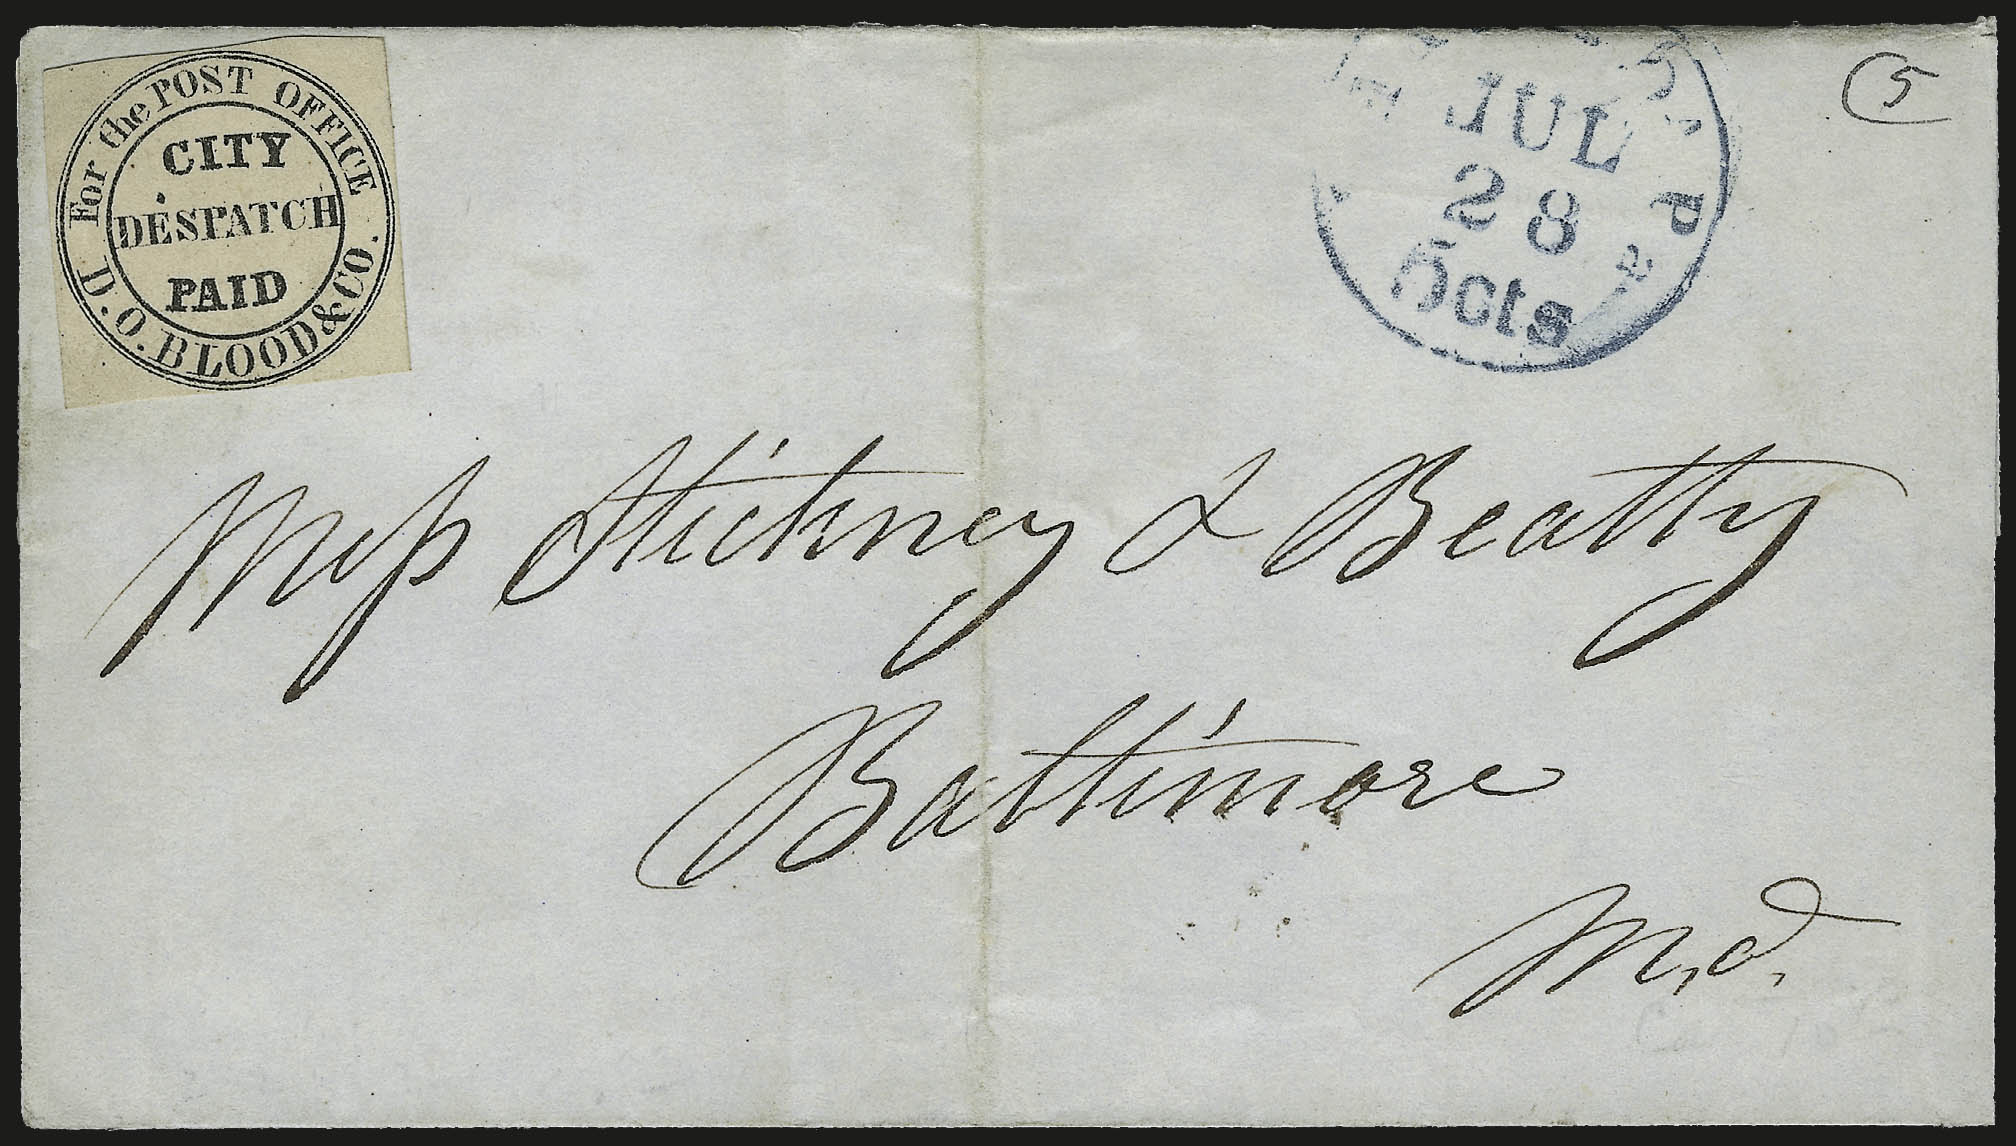 For the POST OFFICE
CITY
DESPATCH
PAID
D.O. BLOOD & CO.
JUL
28
5cts
5
Mess Stickney & Beatty
Baltimore
Md.